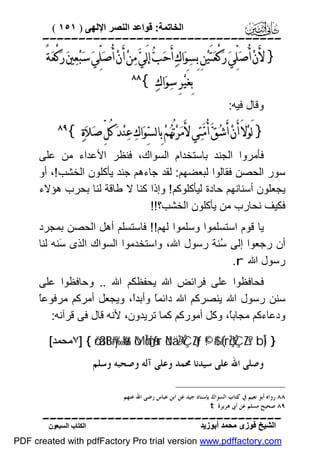 الخاتمة: قواعد النصر الإلهى ( ١٥١ )
{ لأَنْ أُصَلِّيَ رَكْعَتَيْنِ بِسِوَاكٍ أَحَبُّ إِلَيَّ مِنْ أَنْ أُصَلِّيَ سَبْعِينَ رَكْعَةً
بِغَيْرِ سِوَاكٍ }٨٨
وقال فيه:
{ لَوْلاَ أَنْ أَشُقَّ أُمَّتِي لأَمَرْتُهُمْ بِالسِّوَاكِ عِنْدَ كُلِّ صَلاَةٍ }٨٩
فأمروا الجند باستخدام السواك، فنظر الأعداء من على
سور الحصن فقالوا لبعضهم: لقد جاءهم جند يأكلون الخشب!، أو
يجعلون أسنانهم حادة ليأكلوكم! وإذا كنا لا طاقة لنا بحرب هؤلاء
فكيف نحارب من يأكلون الخشب؟!!
يا قوم استسلموا وسلموا لهم!! فاستسلم أهل الحصن بمجرد
أن رجعوا إلى سُنة رسول الله، واستخدموا السواك الذى سَنه لنا
رسول الله r.
فحافظوا على فرائض الله يحفظكم الله .. وحافظوا على
سنن رسول الله ينصركم الله دائماً وأبداً، ويجعل أمركم مرفوعاً
ودعاءكم مجاباً، وكل أموركم كما تريدون، لأنه قال فى قرآنه:
[٧محمد]
وصلى الله على سيدنا محمد وعلى آله وصحبه وسلم
٨٨ رواه أبو نعيم في كتاب السواك بإسناد جيد عن ابن عباس رضى الله عنهم
٨٩ صحيح مسلم عن أبى هريرة t
الشيخ فوزى محمد أبوزيد
الكتاب السبعون
PDF created with pdfFactory Pro trial version www.pdffactory.com